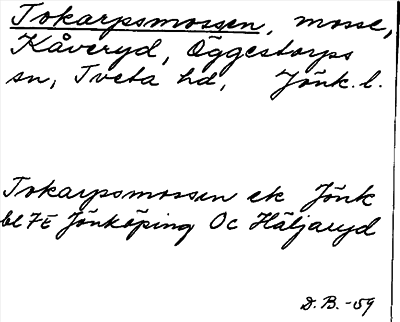 Tokarpsmossen, mosse,
Kåveryd, Öggestorps
sn, Tveta hd, Jönk. l.
Tokarpsmossen ek Jönk
bl 7E Jönköping Oc Häljaryd
D.B. -59